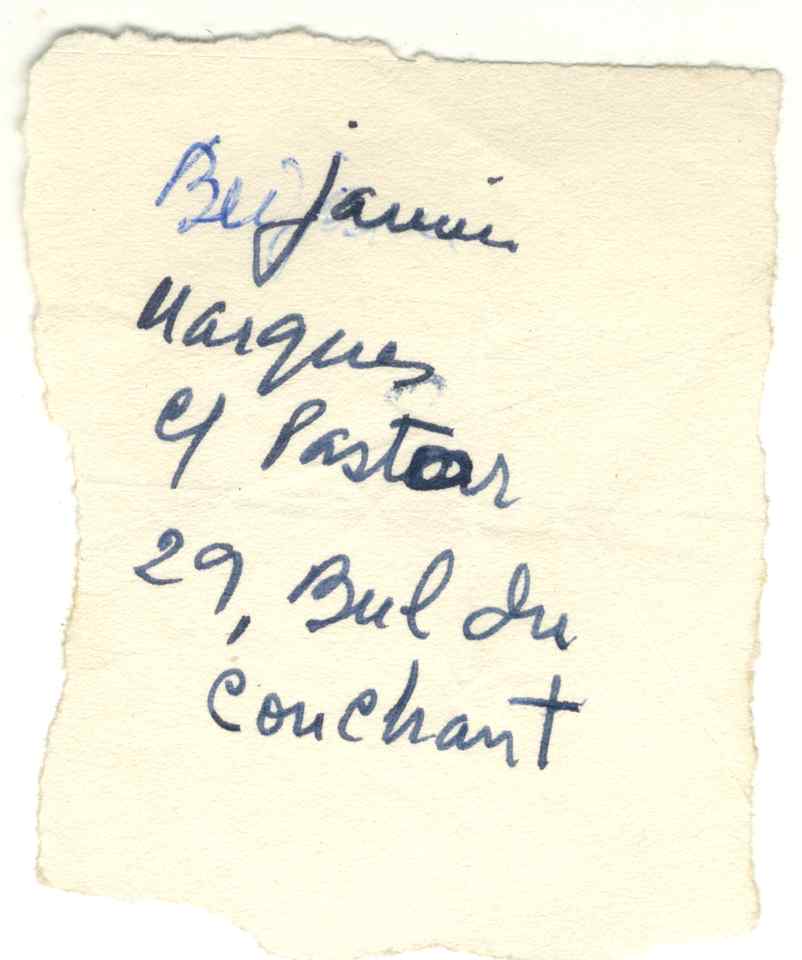 Benjamin
Marques
c/ Pastor
29, Bul du
Couchant